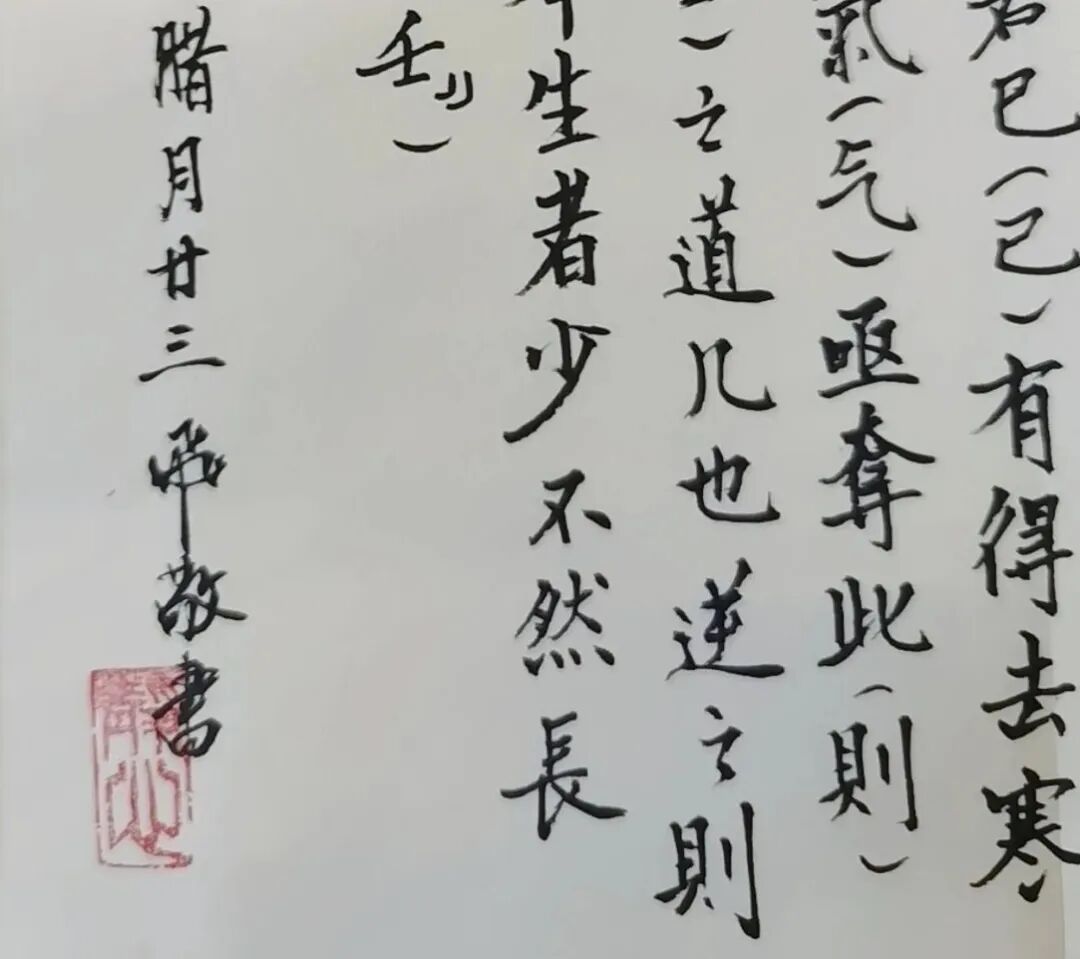 巳（已）有得去寒
氣（气）亟奪此（則）
）之道几也逆之則
生者少不然長
壬〃）
臘月廿三 敬書
靜心